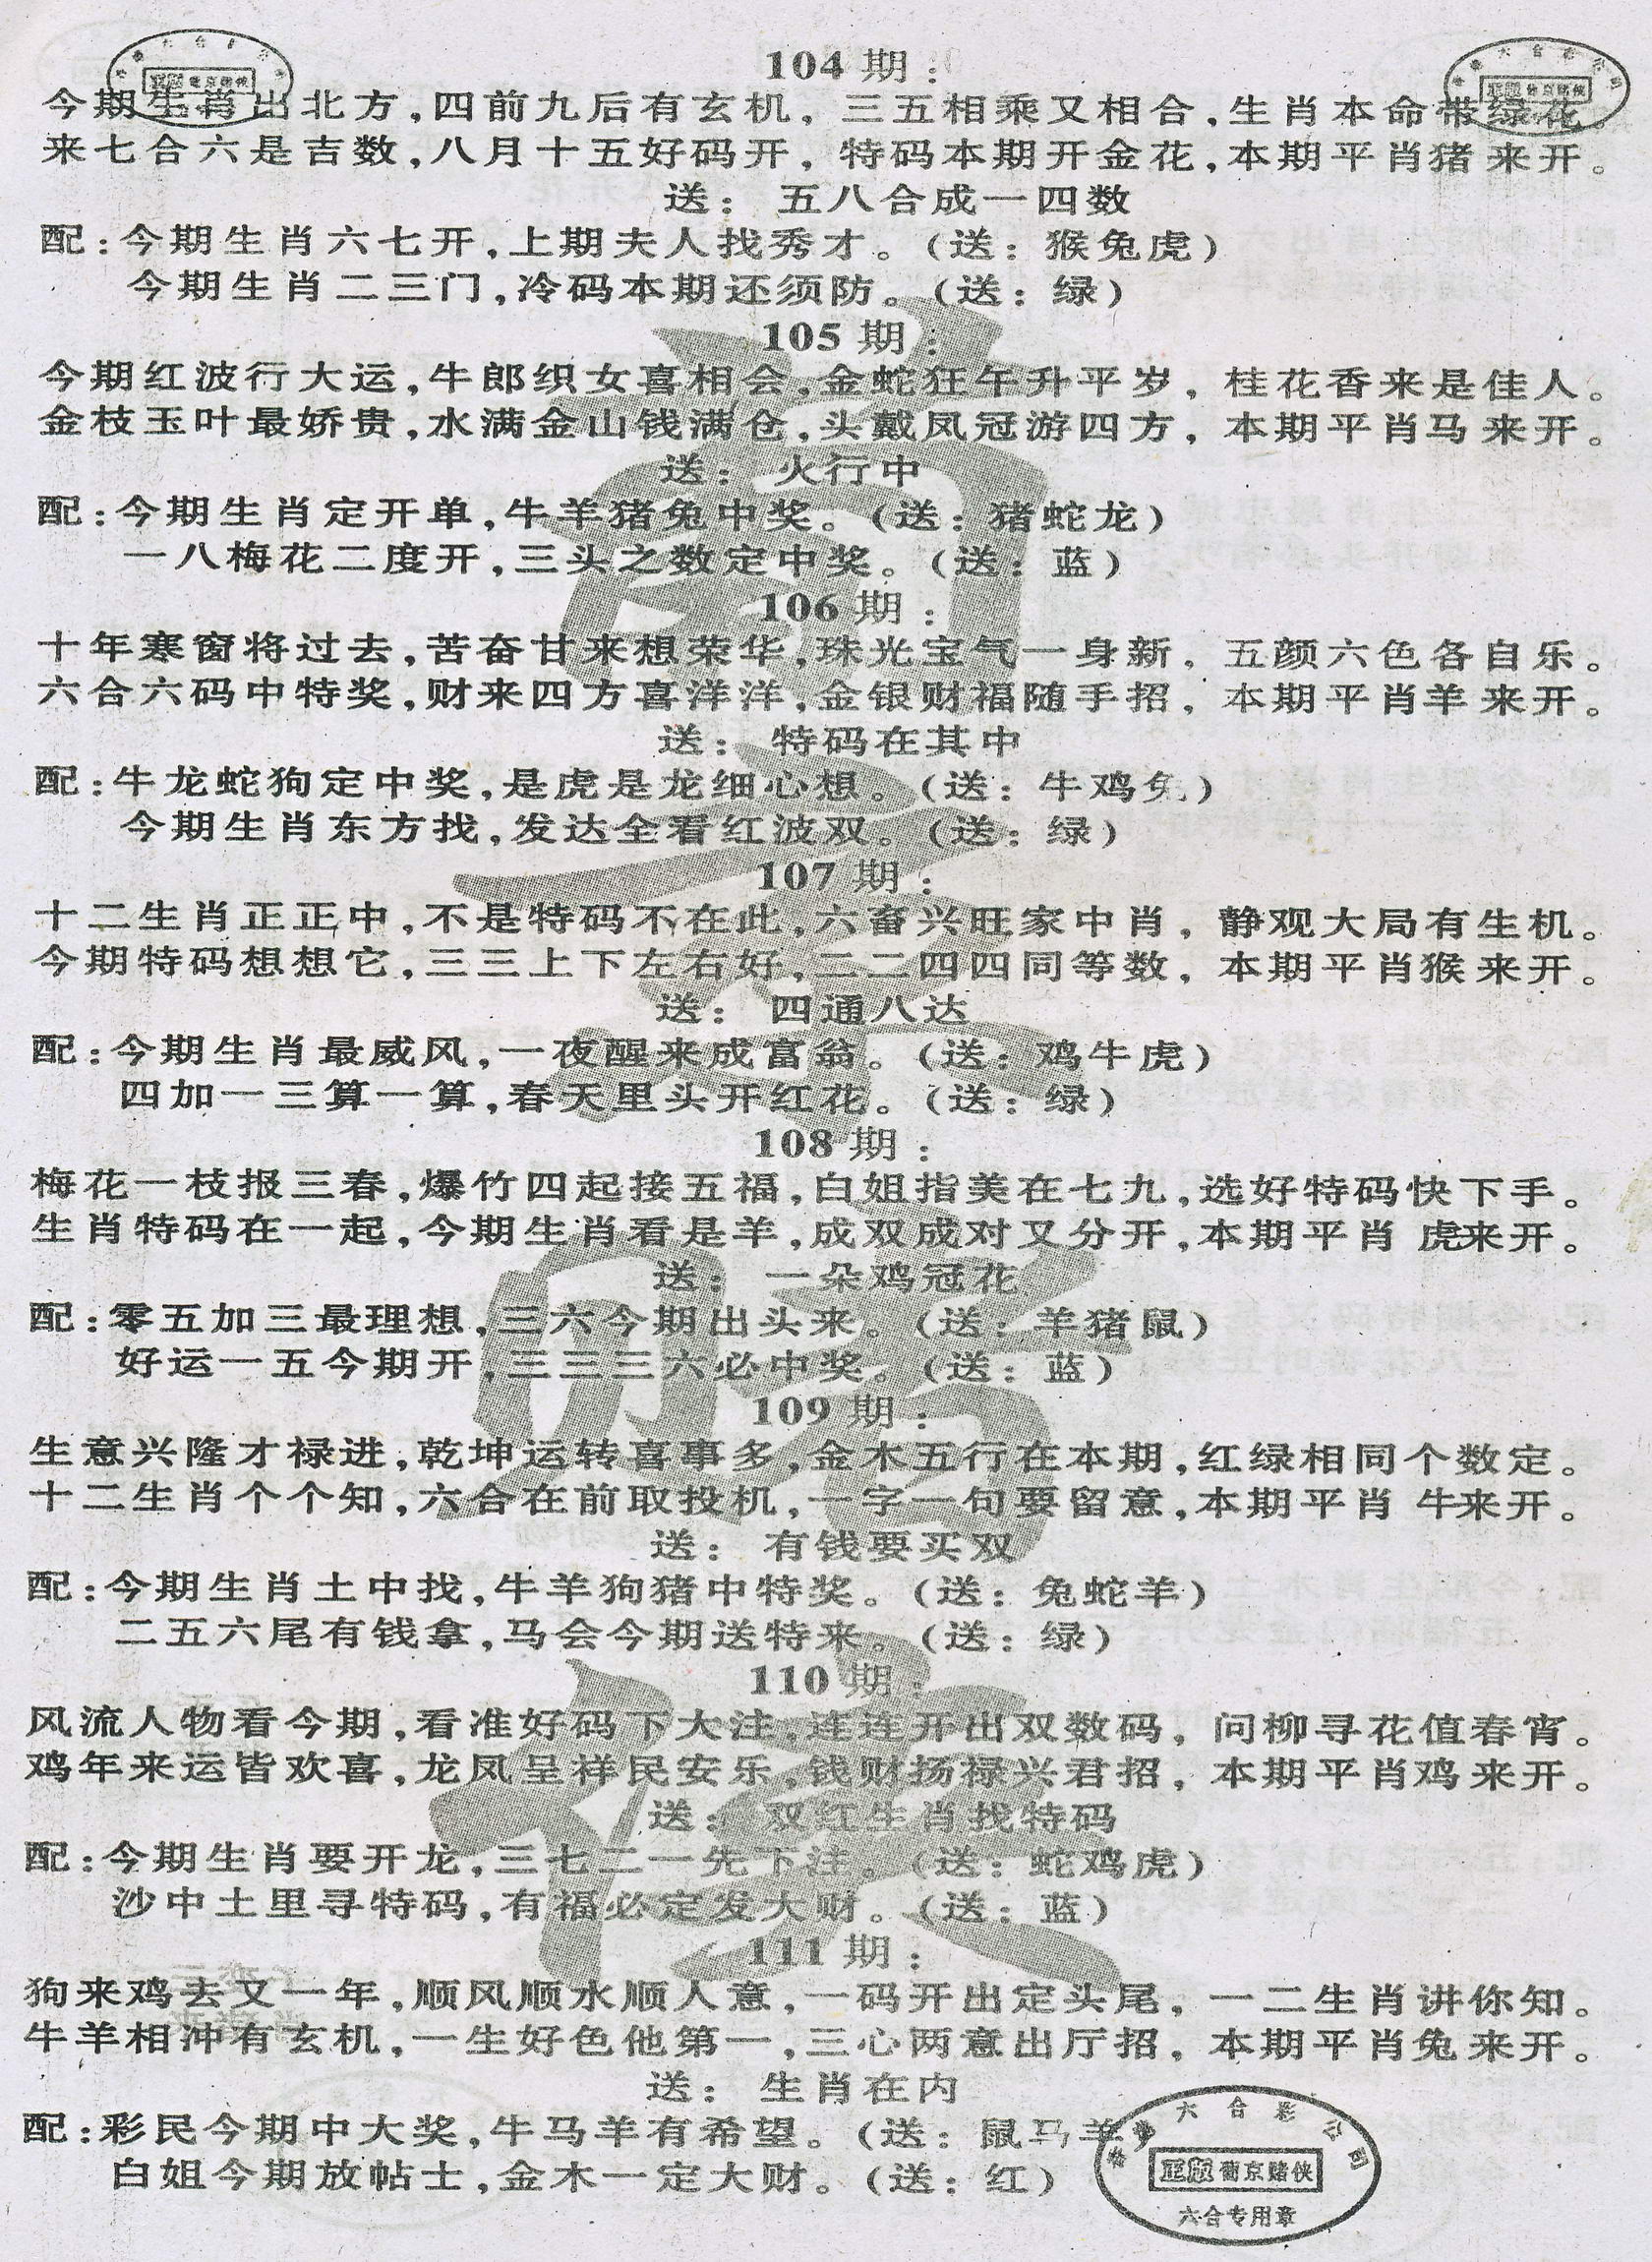 104期：
今期生肖出北方,四前九后有玄机, 三五相乘又相合,生肖本命带绿花。
来七合六是吉数,八月十五好码开, 特码本期开金花,本期平肖猪来开。
送： 五八合成一四数
配:今期生肖六七开,上期夫人找秀才。(送：猴兔虎)
今期生肖二三门,冷码本期还须防。(送：绿)
105期：
今期红波行大运,牛郎织女喜相会,金蛇狂午升平岁, 桂花香来是佳人。
金枝玉叶最娇贵,水满金山钱满仓,头戴凤冠游四方, 本期平肖马来开。
送： 火行中
配:今期生肖定开单,牛羊猪兔中奖。(送：猪蛇龙)
一八梅花二度开,三头之数定中奖。(送：蓝)
106期：
十年寒窗将过去,苦奋甘来想荣华,珠光宝气一身新, 五颜六色各自乐。
六合六码中特奖,财来四方喜洋洋,金银财福随手招, 本期平肖羊来开。
送： 特码在其中
配:牛龙蛇狗定中奖,是虎是龙细心想。(送：牛鸡兔)
今期生肖东方找,发达全看红波双。(送：绿)
107期：
十二生肖正正中,不是特码不在此,六畜兴旺家中肖, 静观大局有生机。
今期特码想想它,三三上下左右好,二二四四同等数, 本期平肖猴来开。
送： 四通八达
配:今期生肖最威风,一夜醒来成富翁。(送：鸡牛虎)
四加一三算一算,春天里头开红花。(送：绿)
108期：
梅花一枝报三春,爆竹四起接五福,白姐指美在七九,选好特码快下手。
生肖特码在一起,今期生肖看是羊,成双成对又分开,本期平肖 虎来开。
送： 一朵鸡冠花
配:零五加三最理想,三六今期出头来。(送：羊猪鼠)
好运一五今期开,三三三六必中奖。(送：蓝)
109期：
生意兴隆才禄进,乾坤运转喜事多,金木五行在本期,红绿相同个数定。
十二生肖个个知,六合在前取投机,一字一句要留意,本期平肖 牛来开。
送： 有钱要买双
配:今期生肖土中找,牛羊狗猪中特奖。(送：兔蛇羊)
二五六尾有钱拿,马会今期送特来。(送：绿)
110期：
风流人物看今期,看准好码下大注,连连开出双数码, 问柳寻花值春宵。
鸡年来运皆欢喜,龙凤呈祥民安乐,钱财扬禄兴君招, 本期平肖鸡来开。
送： 双红生肖找特码
配:今期生肖要开龙,三七二一先下注。(送：蛇鸡虎)
沙中土里寻特码,有福必定发大财。(送：蓝)
111期：
狗来鸡去又一年,顺风顺水顺人意,一码开出定头尾, 一二生肖讲你知。
牛羊相冲有玄机,一生好色他第一,三心两意出厅招, 本期平肖兔来开。
送： 生肖在内
配:彩民今期中大奖,牛马羊有希望。(送：鼠马羊)
白姐今期放帖士,金木一定大财。(送：红)
六合彩公司
正版 葡京赌侠
六合专用章
葡京赌侠